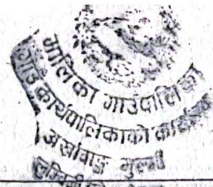 मालिका गाउँपालिका
गाउँ कार्यपालिकाको कार्यालय
अर्खावाङ गुल्मी